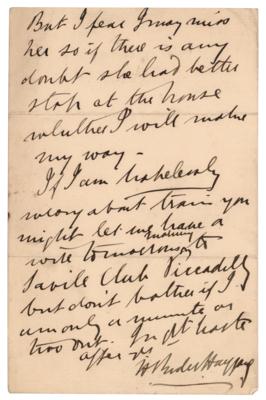 But I fear I may miss
her so if there is any
doubt she had better
stop at the house
whither I will make
my way –
If I am hopelessly
wrong about train you
might let me have a
wire tomorrow morning to
Savile Club Piccadilly
but don't bother if I
am only a minute or
two out. In gt haste
affec yrs
H Rider Haggard